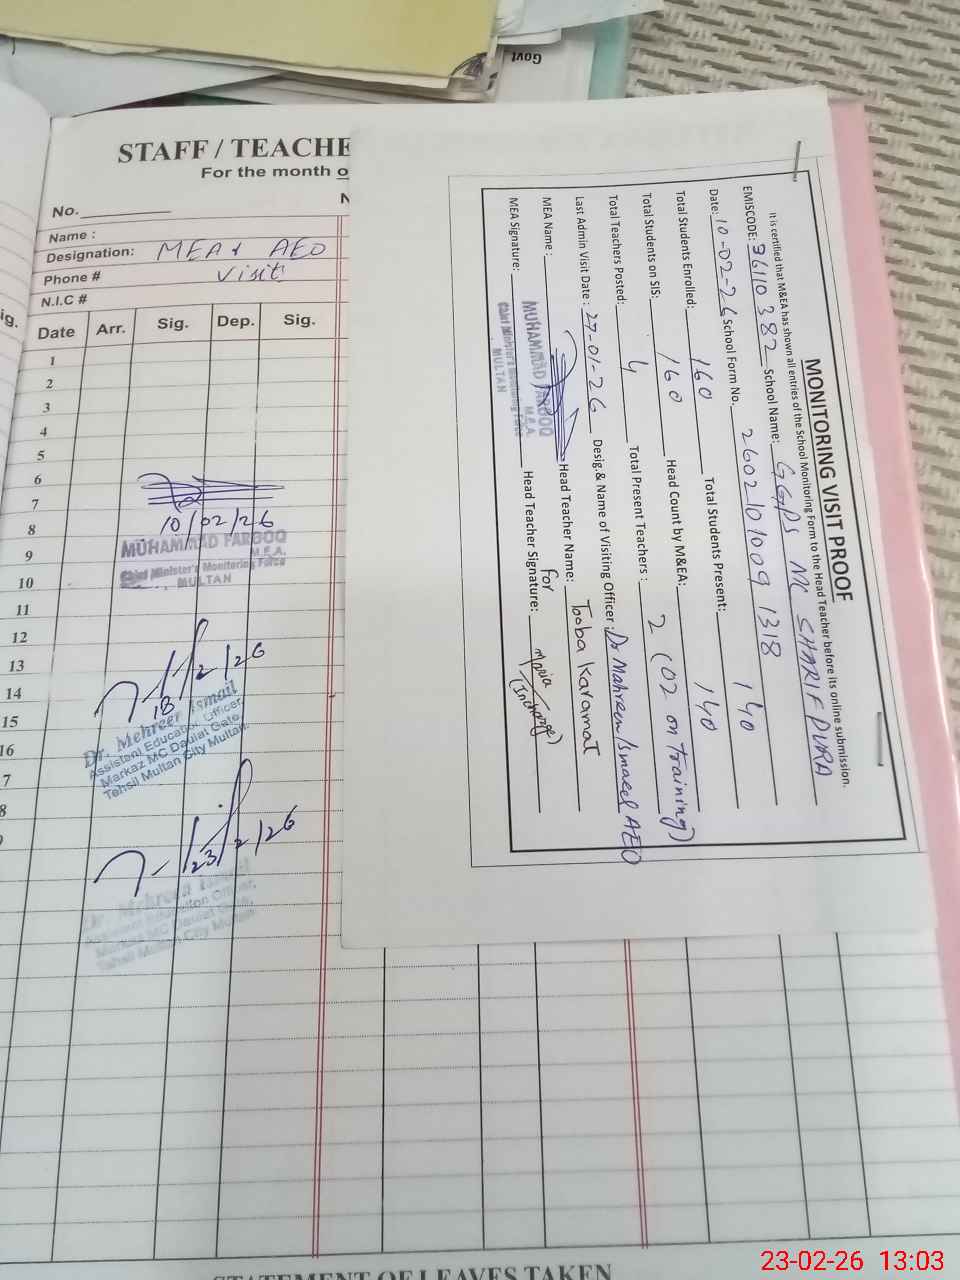 Govt
STAFF / TEACHE
For the month o
No.
N
Name :
Designation: MEA & AEO
Phone # Visit
N.I.C #
ig.
Date Arr. Sig. Dep. Sig.
1
2
3
4
5
6
7
8
9
10
11
12
13
14
15
16
7
8
10/02/26
MUHAMMAD FAROOQ
M.E.A.
Chief Minister's Monitoring Force
MULTAN
18/2/26
Dr. Mehreen Ismail
Assistant Education Officer,
Markaz MC Daulat Gate,
Tehsil Multan City Multan.
23/2/26
Dr. Mehreen Ismail
Assistant Education Officer,
Markaz MC Daulat Gate,
Tehsil Multan City Multan.
MONITORING VISIT PROOF
It is certified that M&EA has shown all entries of the School Monitoring Form to the Head Teacher before its online submission.
EMISCODE: 36110382 School Name: GGPS MC SHARIF PURA
Date: 10-02-26 School Form No. 2602101009 1318
Total Students Enrolled: 160 Total Students Present: 140
Total Students on SIS: 160 Head Count by M&EA: 140
Total Teachers Posted: 4 Total Present Teachers : 2 (02 on training)
Last Admin Visit Date : 27-01-26 Desig.& Name of Visiting Officer : Dr Mahreen Ismaeel AEO
MEA Name : Head Teacher Name: Tooba Karamat
MEA Signature: Head Teacher Signature: For Maria (Incharge)
MUHAMMAD FAROOQ
M.E.A.
Chief Minister's Monitoring Force
MULTAN
STATEMENT OF LEAVES TAKEN
23-02-26 13:03